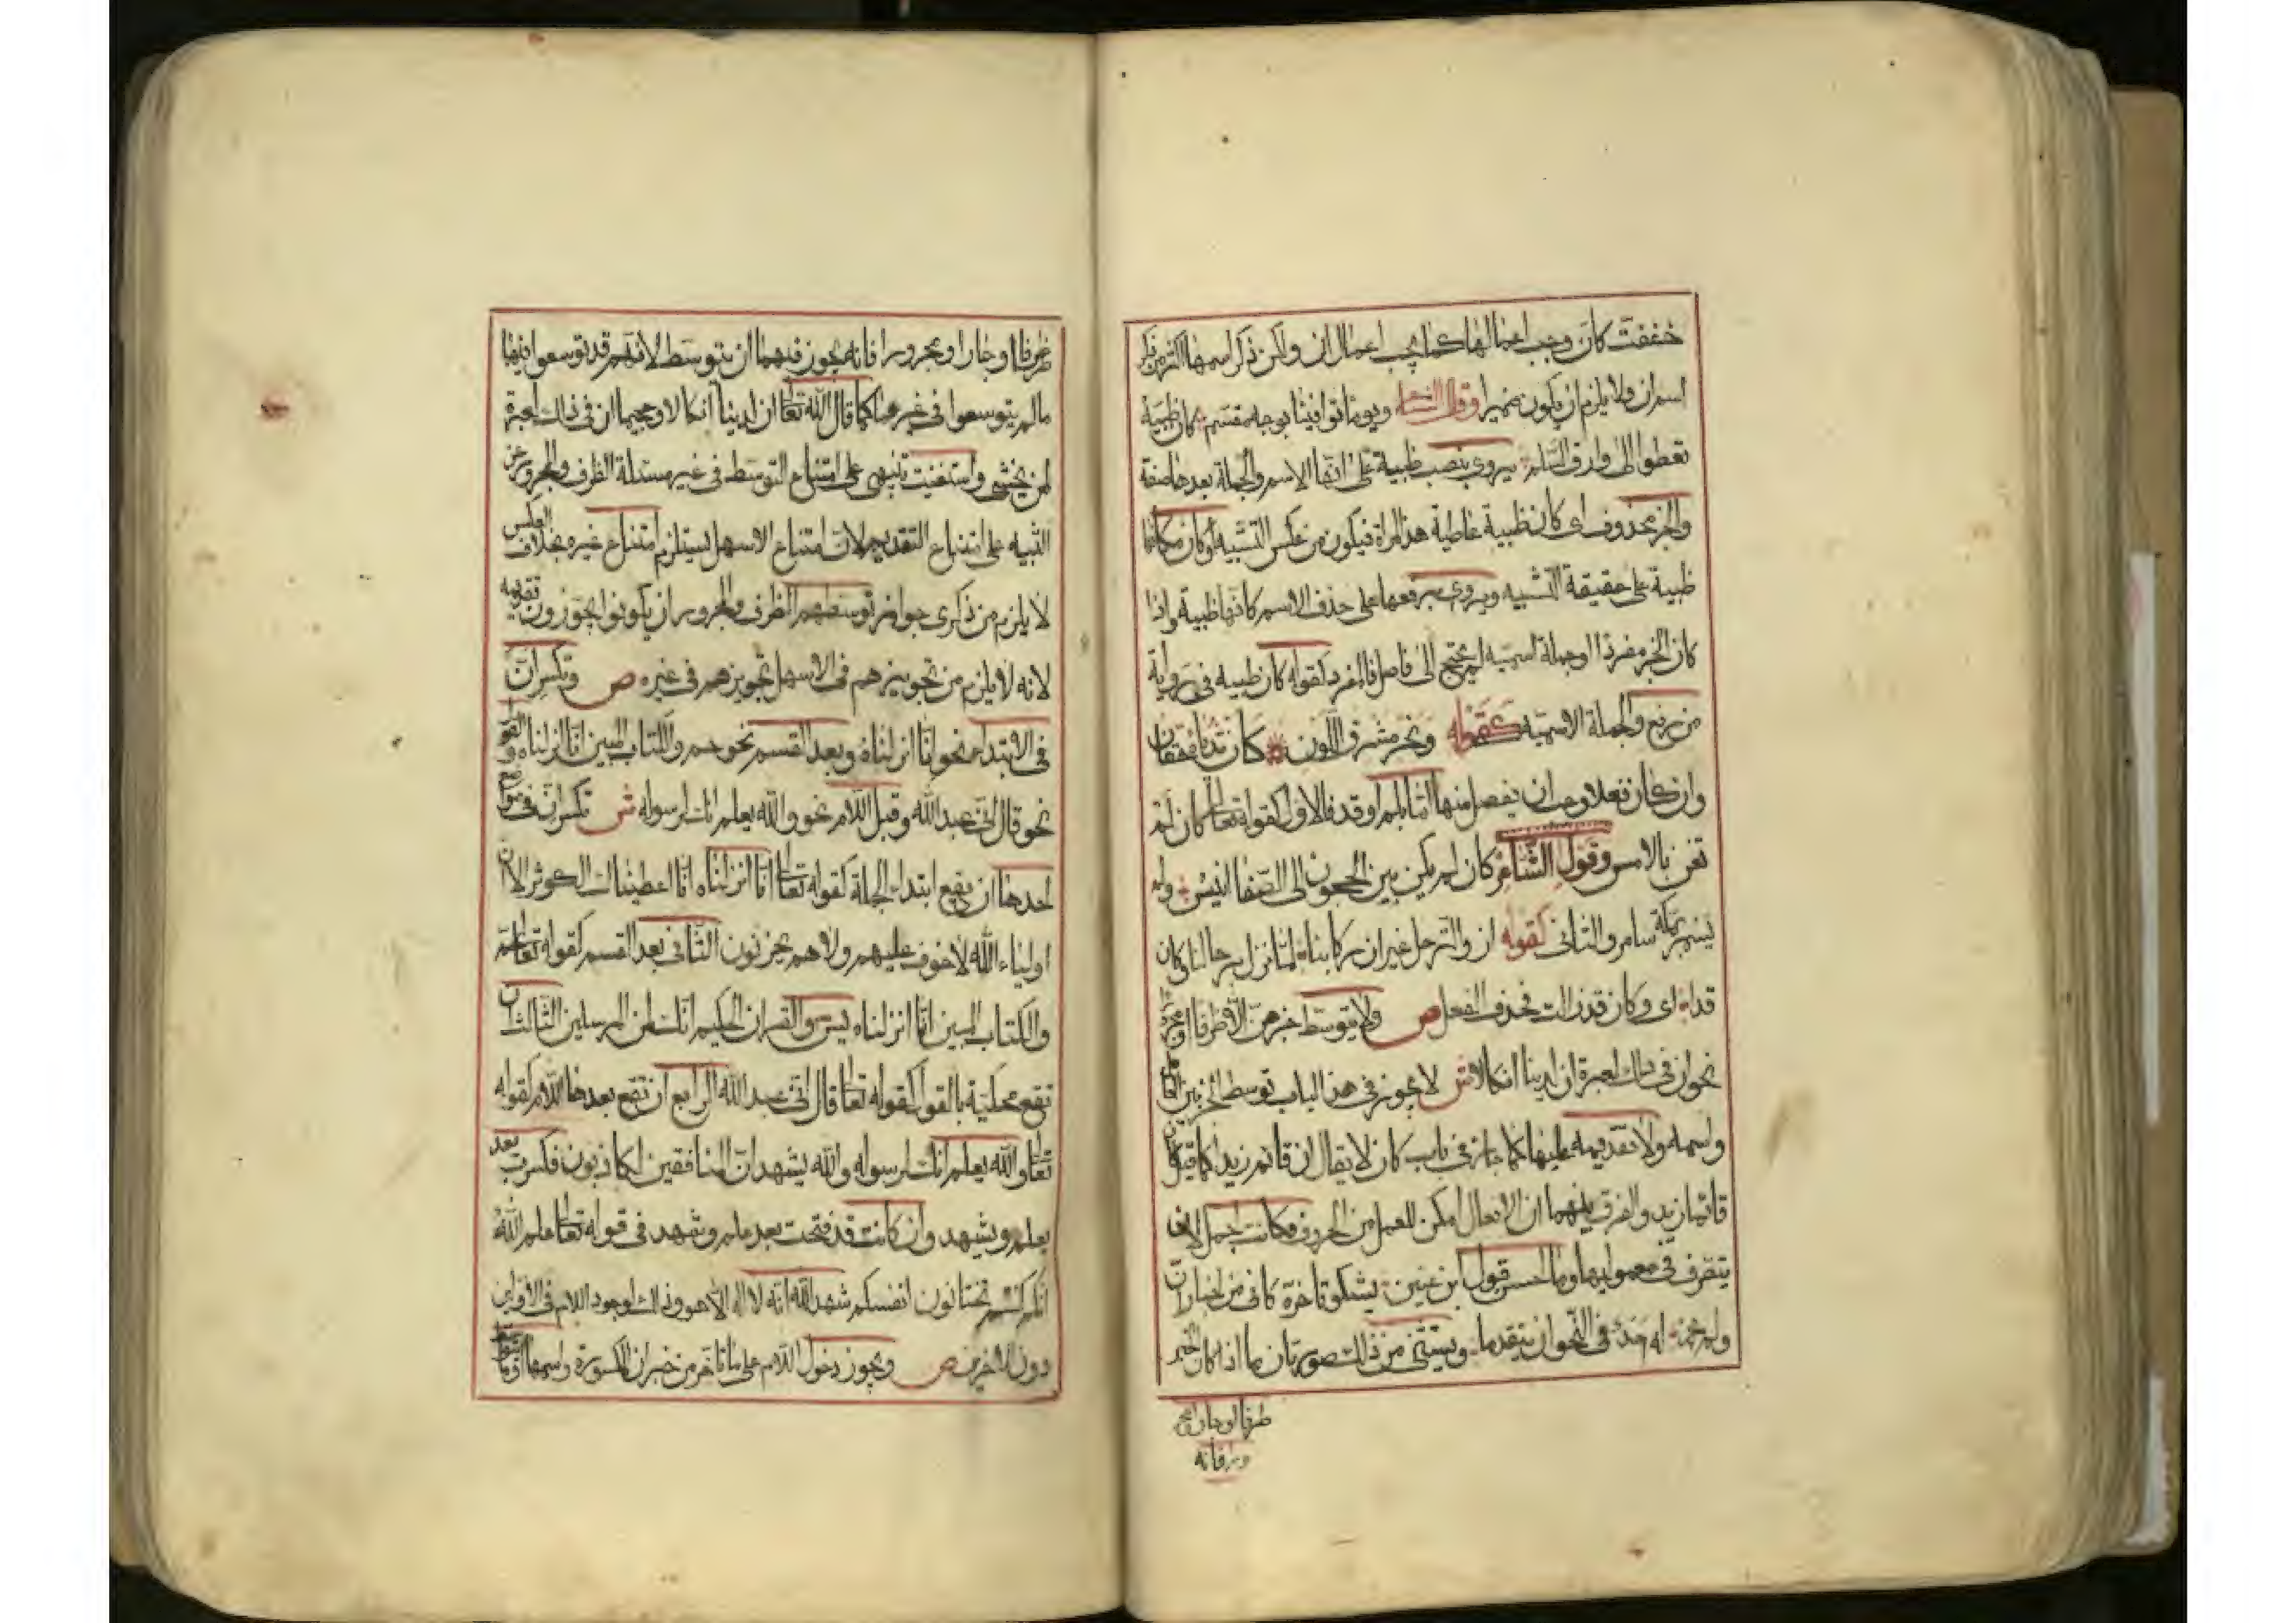 خففت كان وجب اعمالها كما يجب اعمال ان ولكن ذكر اسمها اكثر من ذكر
اسم ان ولا يلزم ان يكون ضميرا وقال الشاعر ويوما توافينا بوجه مقسم كان ظبية
تعطوا الى وارق السلم يروى بنصب ظبية على انها الاسم والجملة بعدها صفة
والخبر محذوف اى كان ظبية عاطية هذه المراة فيكون من عكس التشبيه او كان مكانها
ظبية على حقيقة التشبيه ويروى برفعها على حذف الاسم كانها ظبية واذا
كان الخبر مفردا او جملة اسميه لم يحتج الى فاصل فالمفرد كقوله كان ظبيه فى رواية
من رفع والجملة الاسميه كقوله ونحر مشرق اللون كان ثدياه حقان
وان كان فعلا وجب ان يفصل منها اما بلم او قد فالاول كقوله تعالى كان لم
تغن بالامس وقول الشاعر كان لم يكن بين الحجون الى الصفا انيس ولم
يسمر بمكة سامر والثانى كقوله ازف الترحل غير ان ركابنا لما تزل برحالنا وكان
قد اى وكان قد زالت فحذف الفعل ص ولا يتوسط خبرهن الا ظرفا او مجرورا
نحو ان فى ذلك لعبرة ان لدينا انكالا ش لا يجوز فى هذا الباب توسط الخبر بين العامل
واسمه ولا تقديمه عليهما كما جاز فى باب كان لا يقال ان قائم زيدا كما يقال كان
قائما زيد والفرق بينهما ان الافعال امكن للعمل من الحروف فكانت احمل لان
يتصرف فى معموليها وما احسن قول ابن عنين يشكو تاخره كانى من اخبار ان
ولم يجز له احد فى النحو ان يتقدما ويستثنى من ذلك صورتان ما اذا كان الخبر
ظرفا او جارا ومج
رورا فانه
ظرفا او جارا ومجرورا فانه يجوز فيهما ان يتوسط لانهم قد توسعوا فيها
مالم يتوسعوا فى غيرها كما قال الله تعالى ان لدينا انكالا وجحيما ان فى ذلك لعبرة
لمن يخشى واستغنيت بتنبيهى على امتناع التوسط فى غير مسئلة الظرف والمجرور عن
التنبيه على امتناع التقديم لان امتناع الاسهل يستلزم امتناع غيره بخلاف العكس
لا يلزم من ذكرى جواز توسطهم الظرف والمجرور ان يكونوا يجوزون تقديمه
لانه لا يلزم من تجويزهم فى الاسهل تجويزهم فى غيره ص وتكسر ان
فى الابتداء نحو انا انزلناه وبعد القسم نحو حم والكتاب المبين انا انزلناه والقول
نحو قال انى عبد الله وقبل اللام نحو والله يعلم انك لرسوله ش تكسر ان فى مواضع
احدها ان يقع ابتداء الجملة كقوله تعالى انا انزلناه انا اعطيناك الكوثر الا ان
اولياء الله لا خوف عليهم ولا هم يحزنون الثانى بعد القسم كقوله تعالى حم
والكتاب المبين انا انزلناه يس والقران الحكيم انك لمن المرسلين الثالث ان
تقع محكية بالقول كقوله تعالى قال انى عبد الله الرابع ان تقع بعدها اللام كقوله
تعالى والله يعلم انك لرسوله والله يشهد ان المنافقين لكاذبون فكسرت بعد
يعلم ويشهد وان كانت قد فتحت بعد علم وشهد فى قوله تعالى علم الله
انكم كنتم تختانون انفسكم شهد الله انه لا اله الا هو وذلك لوجود اللام فى الاولين
دون الاخرين ص ويجوز دخول اللام على ما تاخر من خبر ان المكسورة واسمها او ما توسط